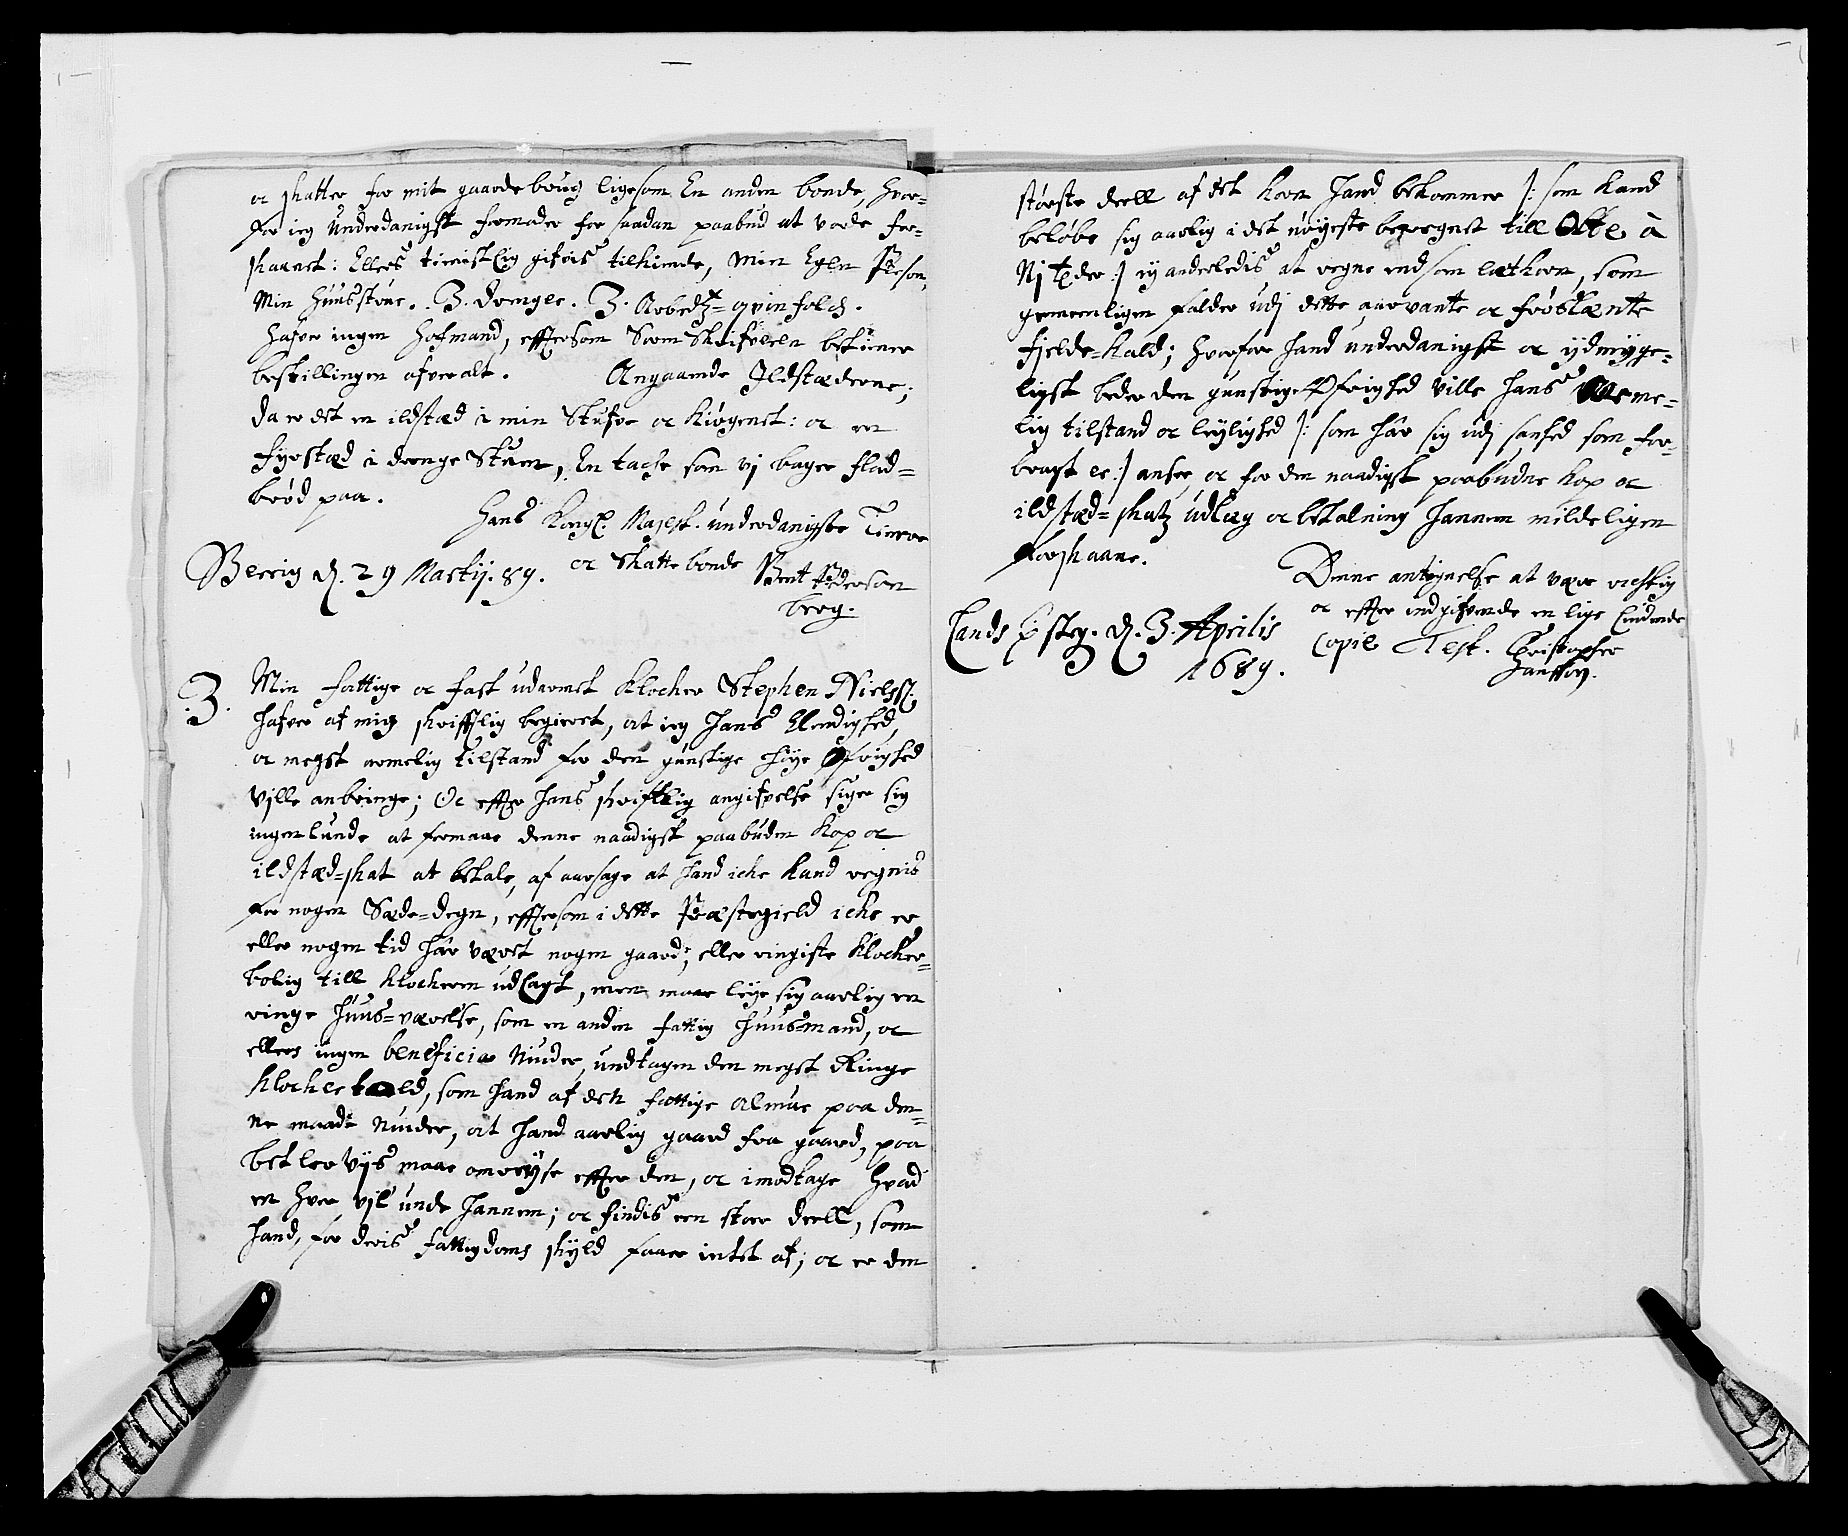 oc skatter for mit gaardebrug ligesom En anden bonde, hvor-
for ieg Underdanigst formoder for saadan paabud at vorde for-
skaanet: Ellers tienistlig gifvis tilkiende, Min Egen Person,
Min Huustrue. 3. drenger. 3. Arbedtz-qvinfolch.
Hafver ingen Hofmand, eftersom Sorenskrifveren betiener
bestillingen ofver alt. Angaaende Ildstæderne;
da er det en ildstæd i min Stufve oc Kiøgenet: oc en
fyrstæd i drenge Stuen, En tache som vj bager flad-
brød paa.
Hans Kongl. Majest. underdanigste Tienere
oc Skatte bonde Bent Pederson
Berg.
Berrig d. 29 Martij. 89.
3. Min fattige oc fast udarmet Klocher Stephen Nielss.
hafver af mig skrifftlig begieret, at ieg hans Elendighed,
oc megst armelig tilstand for den gunstige høye Øfrighed
ville anbringe; Oc effter hans skriftlig angifvelse siger sig
ingenlunde at formaae denne naadigst paabuden Kop oc
ildstæd-skat at betale, af aarsage at hand iche kand regnis
for nogen Sæde-degn, efftersom i dette Præstegield iche er
eller nogen tid har været nogen gaard; eller ringiste Klocher-
bolig till Klocheren udlagt, men maae leye sig aarlig en
ringe Huus-værelse, som en anden fattig Huus-mand, oc
ellers ingen beneficia Niuder, undtagen den megst Ringe
Klocher told, som hand af den fattige Almue paa den-
ne maade Niuder, at hand aarlig gaard fra gaard, paa
betler vijs maae omreyse effter den, oc imodtage hvad
en hver vil unde hannem; oc findis een stoer deell, som
hand, for deris fattigdoms skyld faaer intet af; oc er den
største deell af det Korn hand bekommer /: som kand
beløbe sig aarlig i det nøyeste beregnet till Otte à
Nj Tr̃der :/ ey anderledis at regne end som letkorn, som
gemeenligen falder udj dette aarvante oc frostænte
fjelde-Kald; hvorfore hand underdanigst oc ydmyge-
ligst beder den gunstige Øfrighed ville hans Arme-
lig tilstand oc leylighed /: som har sig udj sanhed som for-
bragt er :/ ansee, oc for den naadigst paabudne Kop oc
ildstæd-skatz udlæg oc betalning hannem mildeligen
forskaane.
Lands Østeg. d. 3. Aprilis
1689.
Denne antegnelse at være rigtig
oc effter indgifvende en lige Liudende
Copie Test. Christopher
Hanssøn.